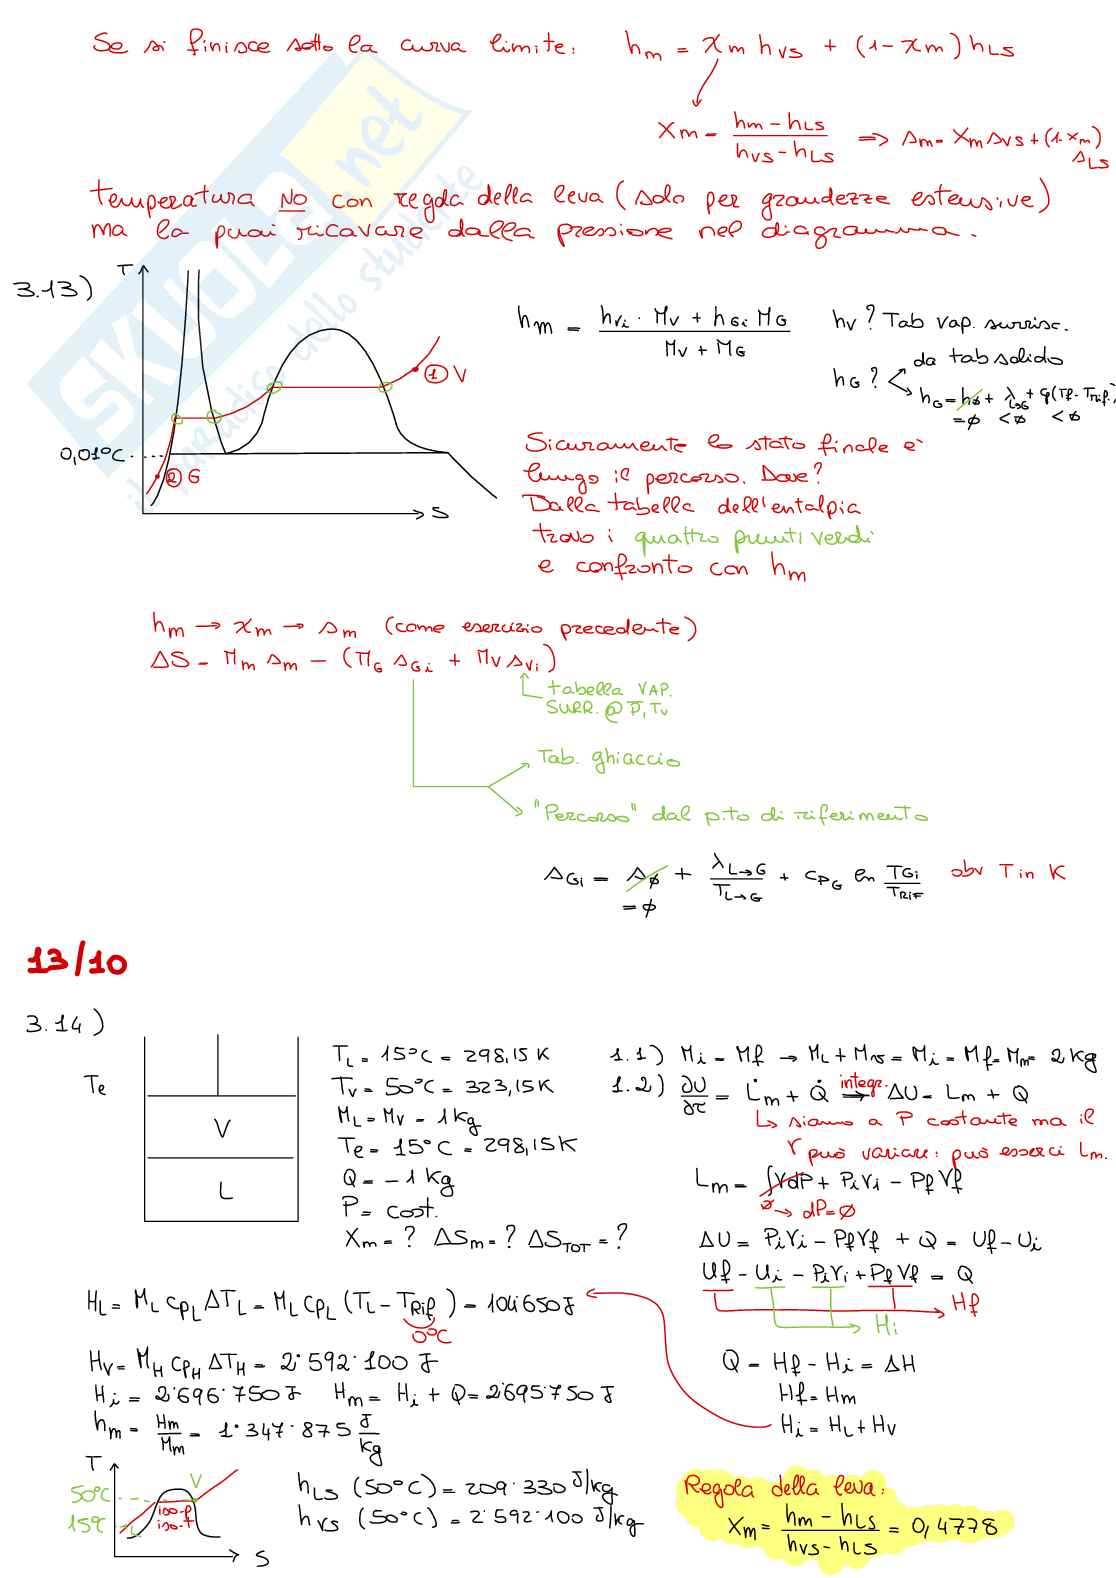 Se si finisce sotto la curva limite: hm = xm hVS + (1-xm) hLS
Xm = (hm - hLS)/(hVS - hLS) => sm = Xm sVS + (1-xm) sLS
temperatura NO con regola della leva (solo per grandezze estensive)
ma la puoi ricavare dalla pressione nel diagramma.
SKUOLA.net
il paradiso dello studente
3.13)
T
① V
0,01°C
② G
S
hm = (hVi · MV + hGi MG)/(MV + MG)
hV? Tab vap. surrisc.
hG?
da tab solido
hG = hφ + λL→G + cp(Tf - TRif)
=φ <φ <φ
Sicuramente lo stato finale è
lungo il percorso. Dove?
Dalla tabella dell'entalpia
trovo i quattro punti verdi
e confronto con hm
hm → xm → sm (come esercizio precedente)
ΔS = Mm sm - (MG sGi + MV sVi)
tabella VAP.
SURR. @ P, TV
Tab. ghiaccio
"Percorso" dal p.to di riferimento
sGi = sφ + λL→G/TL→G + cPG ln TGi/TRIF obv T in K
=φ
13/10
3.14)
Te
V
L
TL = 15°C = 298,15 K
TV = 50°C = 323,15 K
ML = MV = 1 kg
Te = 15°C = 298,15 K
Q = -1 kg
P = cost.
Xm = ? ΔSm = ? ΔSTOT = ?
1.1) Mi = Mf → ML + MV = Mi = Mf = Mm = 2 kg
1.2) ∂U/∂τ = L̇m + Q̇ integr. ⇒ ΔU = Lm + Q
↳ siamo a P costante ma il
V può variare: può esserci Lm.
Lm = ∫VdP + PiVi - PfVf
φ → dP = φ
ΔU = PiVi - PfVf + Q = Uf - Ui
Uf - Ui - PiVi + PfVf = Q
Hf
Hi
Q = Hf - Hi = ΔH
Hf = Hm
Hi = HL + HV
HL = ML cPL ΔTL = ML cPL (TL - TRif) = 104'650 J
0°C
HV = MH cPH ΔTH = 2'592'100 J
Hi = 2'696'750 J Hm = Hi + Q = 2'695'750 J
hm = Hm/Mm = 1'347'875 J/kg
T
50°C
15°C
V
L
S
hLS (50°C) = 209'330 J/kg
hVS (50°C) = 2'592'100 J/kg
Regola della leva:
Xm = (hm - hLS)/(hVS - hLS) = 0,4778